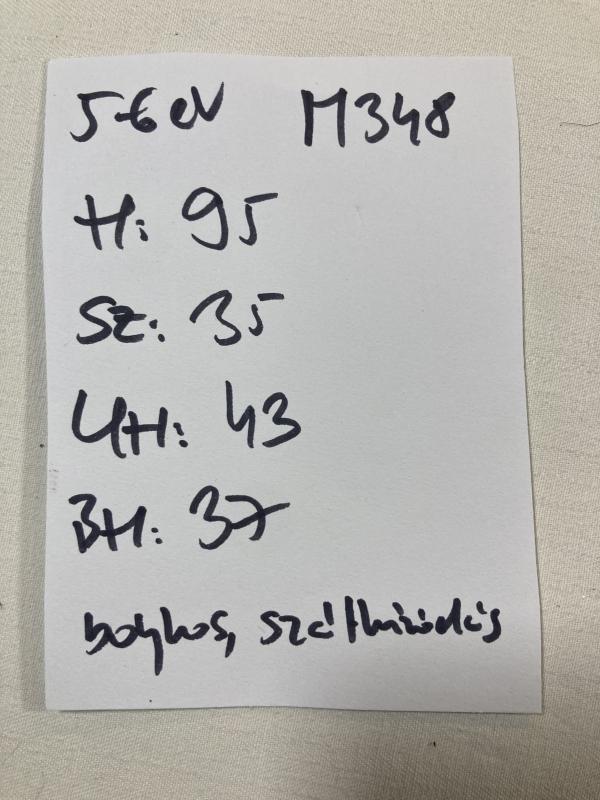 5-6 év M348
H: 95
Sz: 35
UH: 43
BH: 37
bolyhos, szálhúzódás